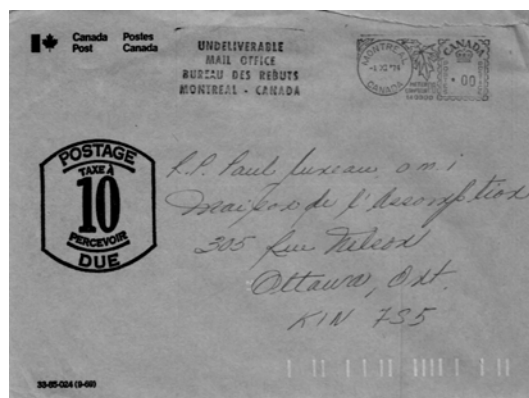 Canada Post
Postes Canada
UNDELIVERABLE
MAIL OFFICE
BUREAU DES REBUTS
MONTREAL - CANADA
MONTREAL
CANADA
CANADA
.00
POSTAGE
TAXE À
10
PERCEVOIR
DUE
R.P. Paul Juneau, o.m.i
Maison de l'Assomption
305 Rue Nelson
Ottawa, Ont.
K1N 7S5
33-85-024 (9-69)